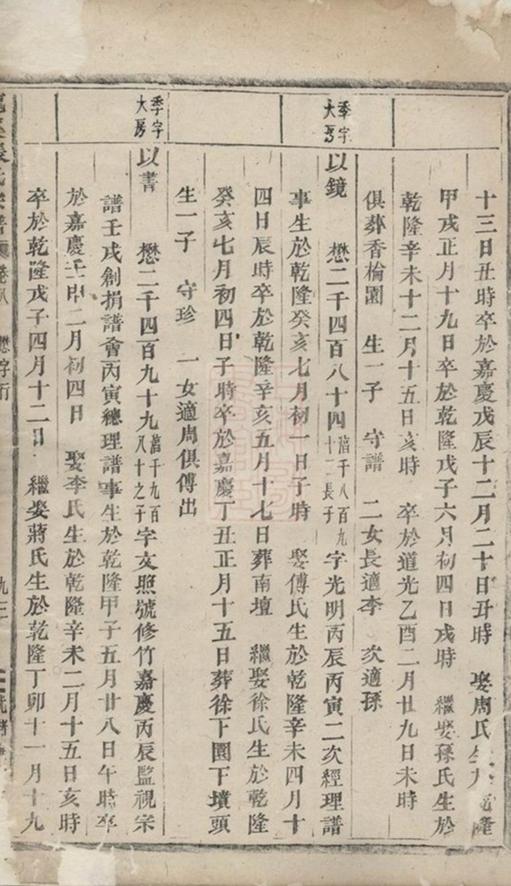 十三日丑時卒於嘉慶戊辰十二月二十日丑時 娶周氏生於乾隆
甲戌正月十九日卒於乾隆戊子六月初四日戌時 繼娶孫氏生於
乾隆辛未十二月十五日亥時 卒於道光乙酉二月廿九日未時
俱葬香楡園 生一子 守譜 二女長適李 次適孫
季字大房 以鏡 懋二千四百八十四 萬千八百九十二長子 字光明丙辰丙寅二次經理譜
事生於乾隆癸亥七月初一日子時 娶傅氏生於乾隆辛未四月十
四日辰時卒於乾隆辛亥五月十七日葬南壇 繼娶徐氏生於乾隆
癸亥七月初四日子時卒於嘉慶丁丑正月十五日葬徐下園下墳頭
生一子 守珍 一女適周俱傅出
季字大房 以書 懋二千四百九十九 萬千九百八十之子 字文照號修竹嘉慶丙辰監視宗
譜壬戌創捐譜會丙寅總理譜事生於乾隆甲子五月廿八日午時卒
於嘉慶壬申二月初四日 娶李氏生於乾隆辛未二月十五日亥時
卒於乾隆戊子四月十二日 繼娶蔣氏生於乾隆丁卯十一月十九
氏宗譜 卷八 懋字行 九三